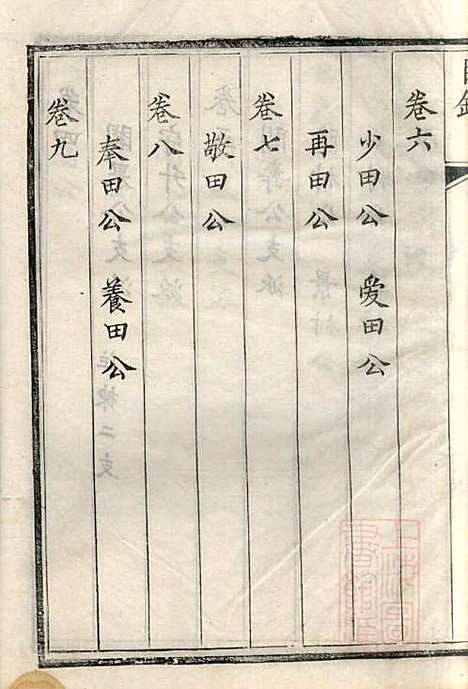 目錄
卷六
少田公 愛田公
再田公
卷七
敬田公
卷八
奉田公 養田公
卷九